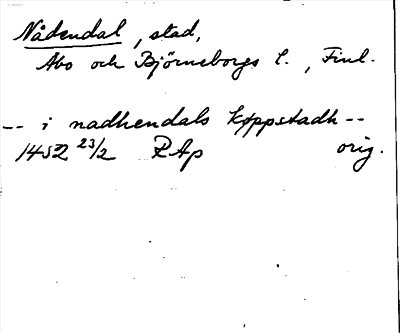 Nådendal, stad,
Åbo och Björneborgs l., Finl.
-- i nadhendals køppstadh --
1452 23/2 RAp orig.